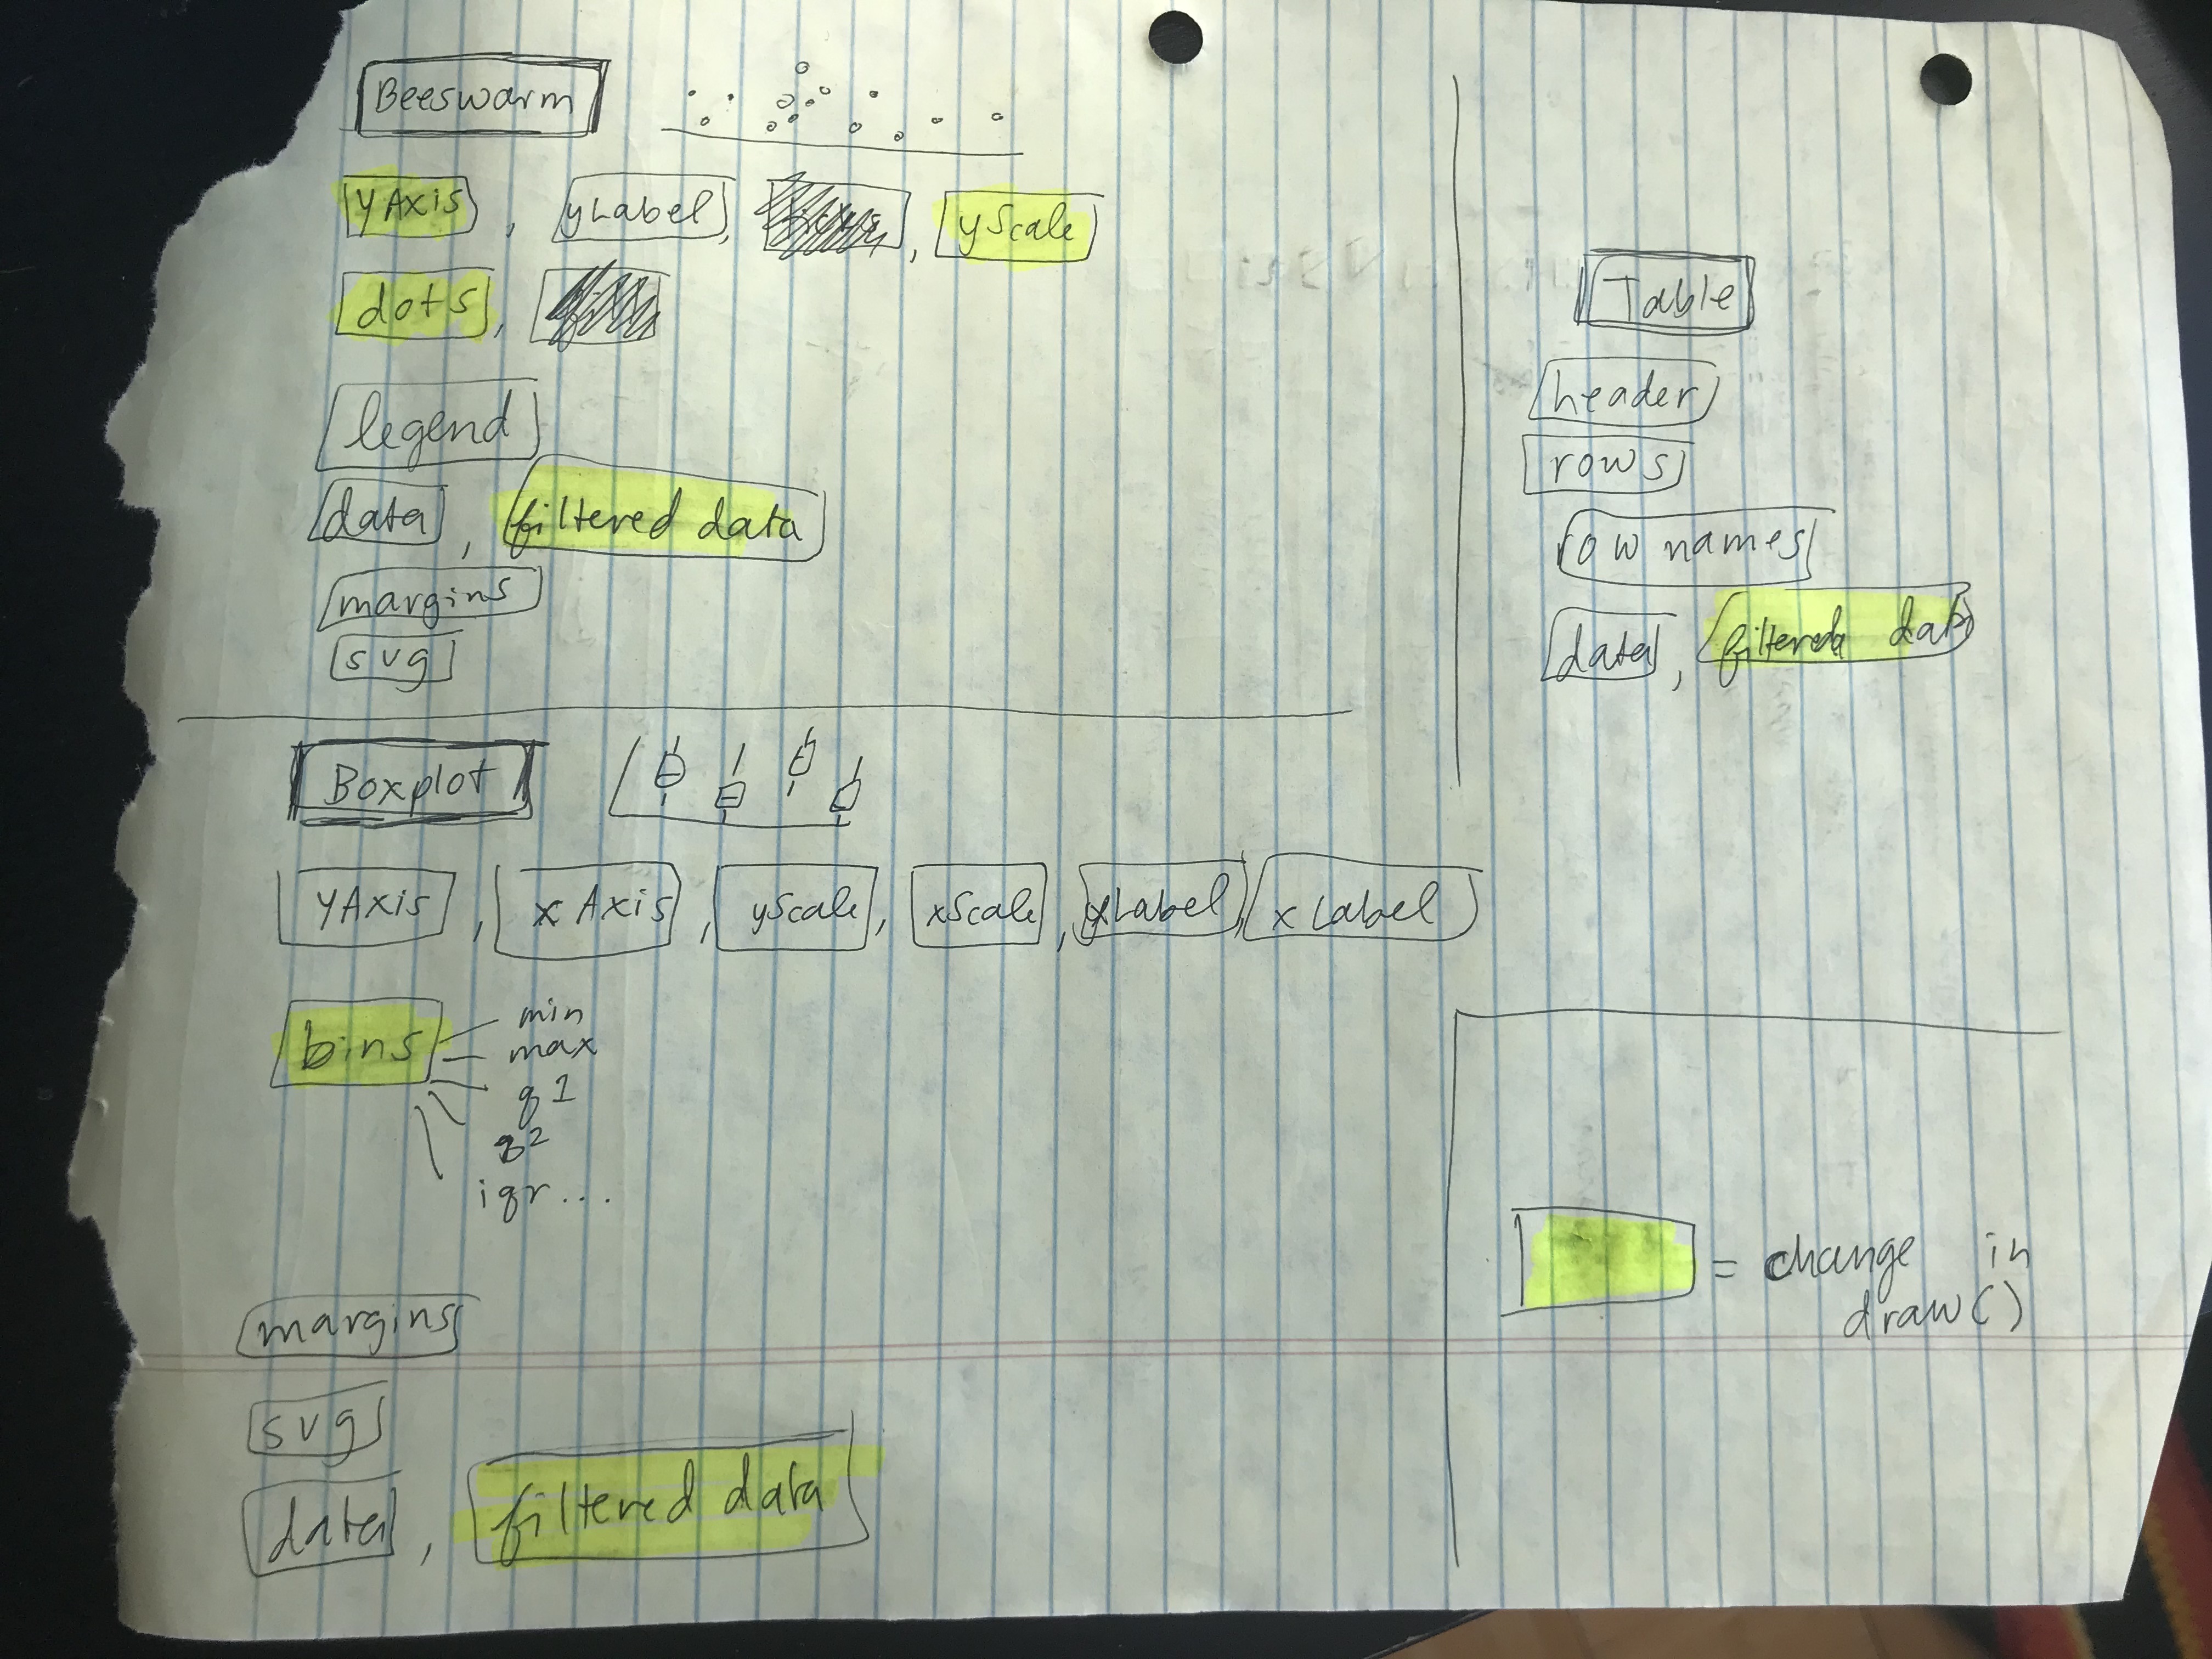 Beeswarm
yAxis, yLabel, , yScale
dots,
legend
data, filtered data
margins
svg
Boxplot
yAxis, xAxis, yScale, xScale, yLabel, xLabel
bins
min
max
q1
q2
iqr...
margins
svg
data, filtered data
Table
header
rows
row names
data, filtered data
= change in
draw()